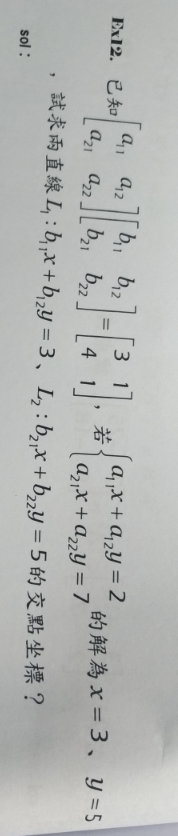 Ex12. 已知 [a₁₁ a₁₂; a₂₁ a₂₂][b₁₁ b₁₂; b₂₁ b₂₂] = [3 1; 4 1]，若 { a₁₁x + a₁₂y = 2; a₂₁x + a₂₂y = 7 的解為 x = 3、y = 5
，試求兩直線 L₁ : b₁₁x + b₁₂y = 3、L₂ : b₂₁x + b₂₂y = 5 的交點坐標？
sol：